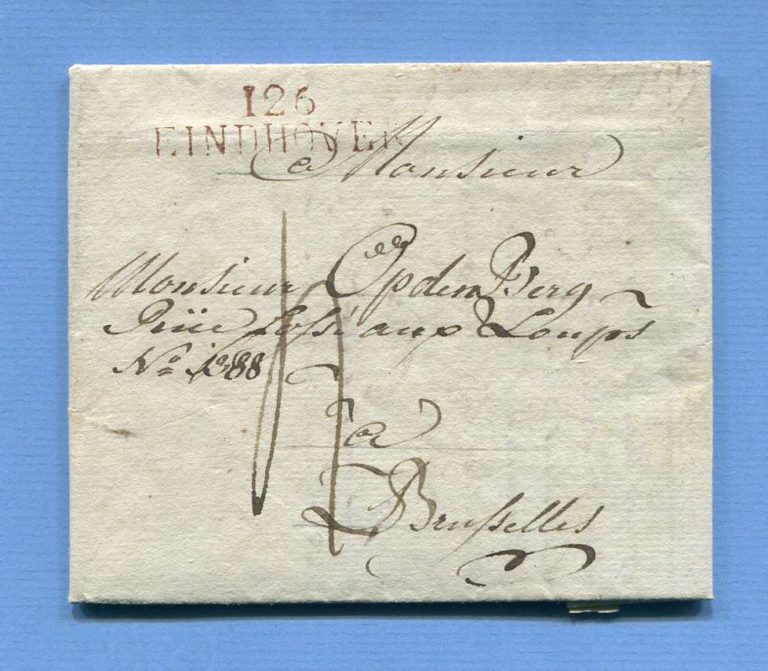 126
EINDHOVEN
a Monsieur
Monsieur Opden Berg
Rüe fossé aux Loups
No. 1088
a
Bruxselles